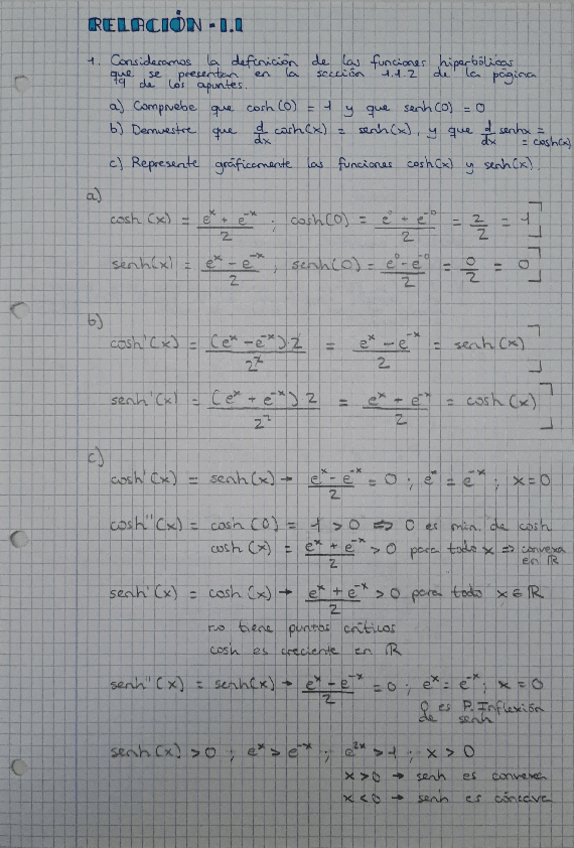 RELACIÓN - 1.1
1. Consideramos la definición de las funciones hiperbólicas
que se presentan en la sección 1.1.2 de la página
19 de los apuntes.
a) Compruebe que cosh(0) = 1 y que senh(0) = 0
b) Demuestre que d/dx cosh(x) = senh(x), y que d/dx senhx =
= cosh(x)
c) Represente gráficamente las funciones cosh(x) y senh(x).
a)
cosh(x) = (e^x + e^-x)/2 ; cosh(0) = (e^0 + e^-0)/2 = 2/2 = 1
senh(x) = (e^x - e^-x)/2 ; senh(0) = (e^0 - e^0)/2 = 0/2 = 0
b)
cosh'(x) = ((e^x - e^-x)·2)/2^2 = (e^x - e^-x)/2 = senh(x)
senh'(x) = ((e^x + e^-x)2)/2^2 = (e^x + e^-x)/2 = cosh(x)
c)
cosh'(x) = senh(x) → (e^x - e^-x)/2 = 0 ; e^x = e^-x ; x = 0
cosh''(x) = cosh(0) = 1 > 0 => 0 es min. de cosh
cosh(x) = (e^x + e^-x)/2 > 0 para todo x => convexa
en ℝ
senh'(x) = cosh(x) → (e^x + e^-x)/2 > 0 para todo x ∈ ℝ
no tiene puntos críticos
cosh es creciente en ℝ
senh''(x) = senh(x) → (e^x - e^-x)/2 = 0 ; e^x = e^-x ; x = 0
0 es P. Inflexión
de senh
senh(x) > 0 ; e^x > e^-x ; e^2x > 1 ; x > 0
x > 0 → senh es convexa
x < 0 → senh es cóncava